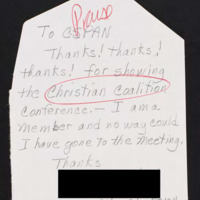 Praise
To CSPAN
Thanks! thanks!
thanks! for showing
the Christian Coalition
Conference. — I am a
member and no way could
I have gone to the meeting.
Thanks